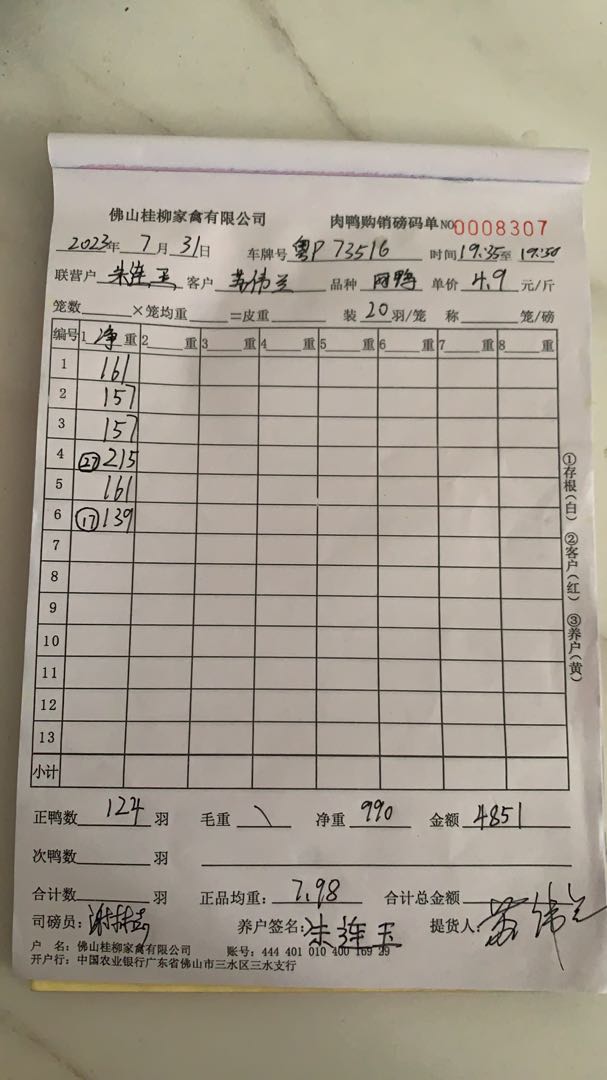 佛山桂柳家禽有限公司 肉鸭购销磅码单 NO 0008307
2023年 7月 31日 车牌号 粤P 73516 时间 19:35至 19:50
联营户 朱连玉 客户 苏伟兰 品种 网鸭 单价 4.9 元/斤
笼数 ×笼均重 =皮重 装 20 羽/笼 称 笼/磅
编号 1 净 重 2 重 3 重 4 重 5 重 6 重 7 重 8 重
1 161
2 157
3 157
4 ㉗ 215
5 161
6 ⑰ 139
7
8
9
10
11
12
13
小计
①存根(白) ②客户(红) ③养户(黄)
正鸭数 124 羽 毛重 \ 净重 990 金额 4851
次鸭数 羽
合计数 羽 正品均重: 7.98 合计总金额
司磅员: 养户签名: 朱连玉 提货人: 苏伟兰
户 名: 佛山桂柳家禽有限公司 账号: 444 401 010 400 169 29
开户行: 中国农业银行广东省佛山市三水区三水支行